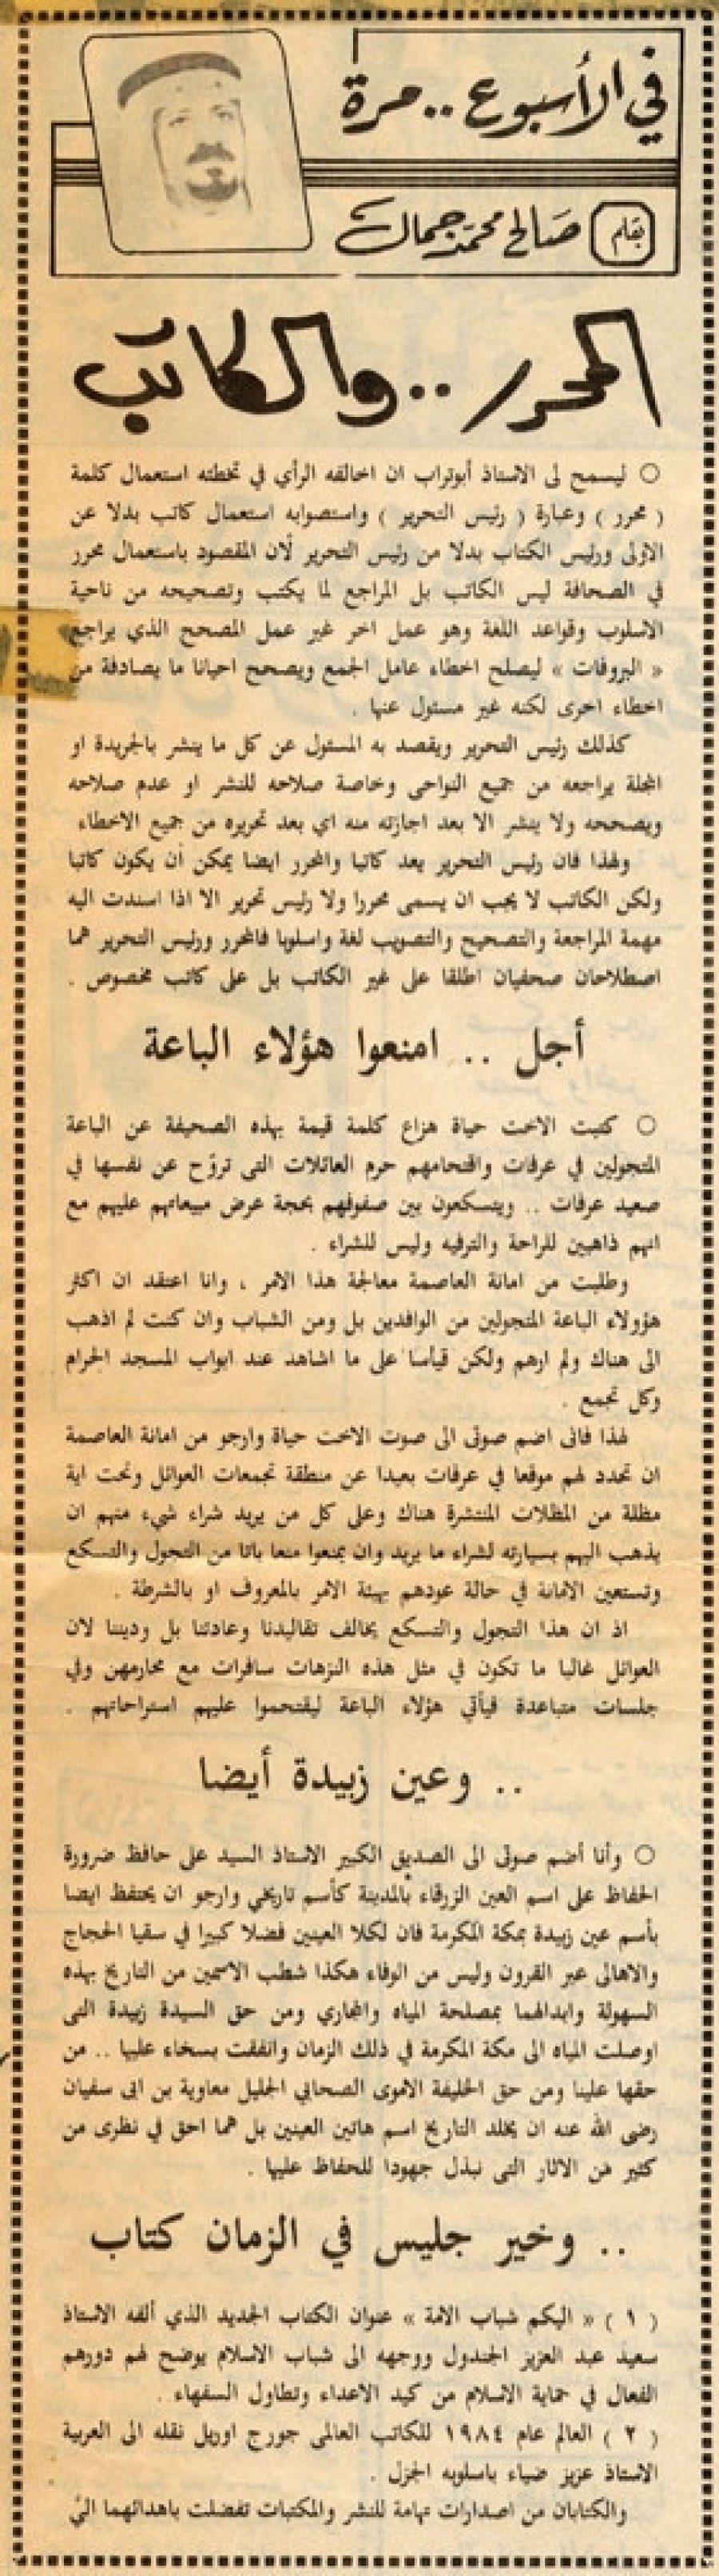 في الأسبوع .. مرة
بقلم صالح محمد جمال
المحرر .. والكاتب
○ ليسمح لى الاستاذ أبوتراب ان اخالفه الرأي في تخطئه استعمال كلمة
( محرر ) وعبارة ( رئيس التحرير ) واستصوابه استعمال كاتب بدلا عن
الاولى ورئيس الكتاب بدلا من رئيس التحرير لأن المقصود باستعمال محرر
في الصحافة ليس الكاتب بل المراجع لما يكتب وتصحيحه من ناحية
الاسلوب وقواعد اللغة وهو عمل اخر غير عمل المصحح الذي يراجع
« البروفات » ليصلح اخطاء عامل الجمع ويصحح احيانا ما يصادفة من
اخطاء اخرى لكنه غير مسئول عنها .
كذلك رئيس التحرير ويقصد به المسئول عن كل ما ينشر بالجريدة او
المجلة يراجعه من جميع النواحى وخاصة صلاحه للنشر او عدم صلاحه
ويصححه ولا ينشر الا بعد اجازته منه اي بعد تحريره من جميع الاخطاء
ولهذا فان رئيس التحرير يعد كاتبا والمحرر ايضا يمكن أن يكون كاتبا
ولكن الكاتب لا يجب ان يسمى محررا ولا رئيس تحرير الا اذا اسندت اليه
مهمة المراجعة والتصحيح والتصويب لغة واسلوبا فالمحرر ورئيس التحرير هما
اصطلاحان صحفيان اطلقا على غير الكاتب بل على كاتب مخصوص .
أجل .. امنعوا هؤلاء الباعة
○ كتبت الاخت حياة هزاع كلمة قيمة بهذه الصحيفة عن الباعة
المتجولين في عرفات واقتحامهم حرم العائلات التى تروّح عن نفسها في
صعيد عرفات .. ويتسكعون بين صفوفهم بحجة عرض مبيعاتهم عليهم مع
انهم ذاهبين للراحة والترفيه وليس للشراء .
وطلبت من امانة العاصمة معالجة هذا الامر ، وانا اعتقد ان اكثر
هؤولاء الباعة المتجولين من الوافدين بل ومن الشباب وان كنت لم اذهب
الى هناك ولم ارهم ولكن قيأسا على ما اشاهد عند ابواب المسجد الحرام
وكل تجمع .
لهذا فانى اضم صوتى الى صوت الاخت حياة وارجو من امانة العاصمة
ان تحدد لهم موقعا في عرفات بعيدا عن منطقة تجمعات العوائل وتحت اية
مظلة من المظلات المنتشرة هناك وعلى كل من يريد شراء شيء منهم ان
يذهب اليهم بسيارته لشراء ما يريد وان يمنعوا منعا باتا من التجول والتسكع
وتستعين الامانة في حالة عودهم بهيئة الامر بالمعروف او بالشرطة .
اذ ان هذا التجول والتسكع يخالف تقاليدنا وعادتنا بل وديننا لان
العوائل غالبا ما تكون في مثل هذه النزهات سافرات مع محارمهن وفي
جلسات متباعدة فيأتي هؤلاء الباعة ليقتحموا عليهم استراحاتهم .
.. وعين زبيدة أيضا
○ وأنا أضم صوتى الى الصديق الكبير الاستاذ السيد على حافظ ضرورة
الحفاظ على اسم العين الزرقاء بالمدينة كأسم تاريخي وارجو ان يحتفظ ايضا
بأسم عين زبيدة بمكة المكرمة فان لكلا العينين فضلا كبيرا في سقيا الحجاج
والاهالى عبر القرون وليس من الوفاء هكذا شطب الاسمين من التاريخ بهذه
السهولة وابدالهما بمصلحة المياه والمجاري ومن حق السيدة زبيدة التى
اوصلت المياه الى مكة المكرمة في ذلك الزمان وانفقت بسخاء عليها .. من
حقها علينا ومن حق الخليفة الاموى الصحابي الجليل معاوية بن ابى سفيان
رضى الله عنه ان يخلد التاريخ اسم هاتين العينين بل هما احق في نظرى من
كثير من الاثار التى نبذل جهودا للحفاظ عليها .
.. وخير جليس في الزمان كتاب
( ١ ) « اليكم شباب الامة » عنوان الكتاب الجديد الذي ألفه الاستاذ
سعيد عبد العزيز الجندول ووجهه الى شباب الاسلام يوضح لهم دورهم
الفعال في حماية الاسلام من كيد الاعداء وتطاول السفهاء .
( ٢ ) العالم عام ١٩٨٤ للكاتب العالمى جورج اوريل نقله الى العربية
الاستاذ عزيز ضياء باسلوبه الجزل .
والكتابان من اصدارات تهامة للنشر والمكتبات تفضلت باهدائهما الىّ